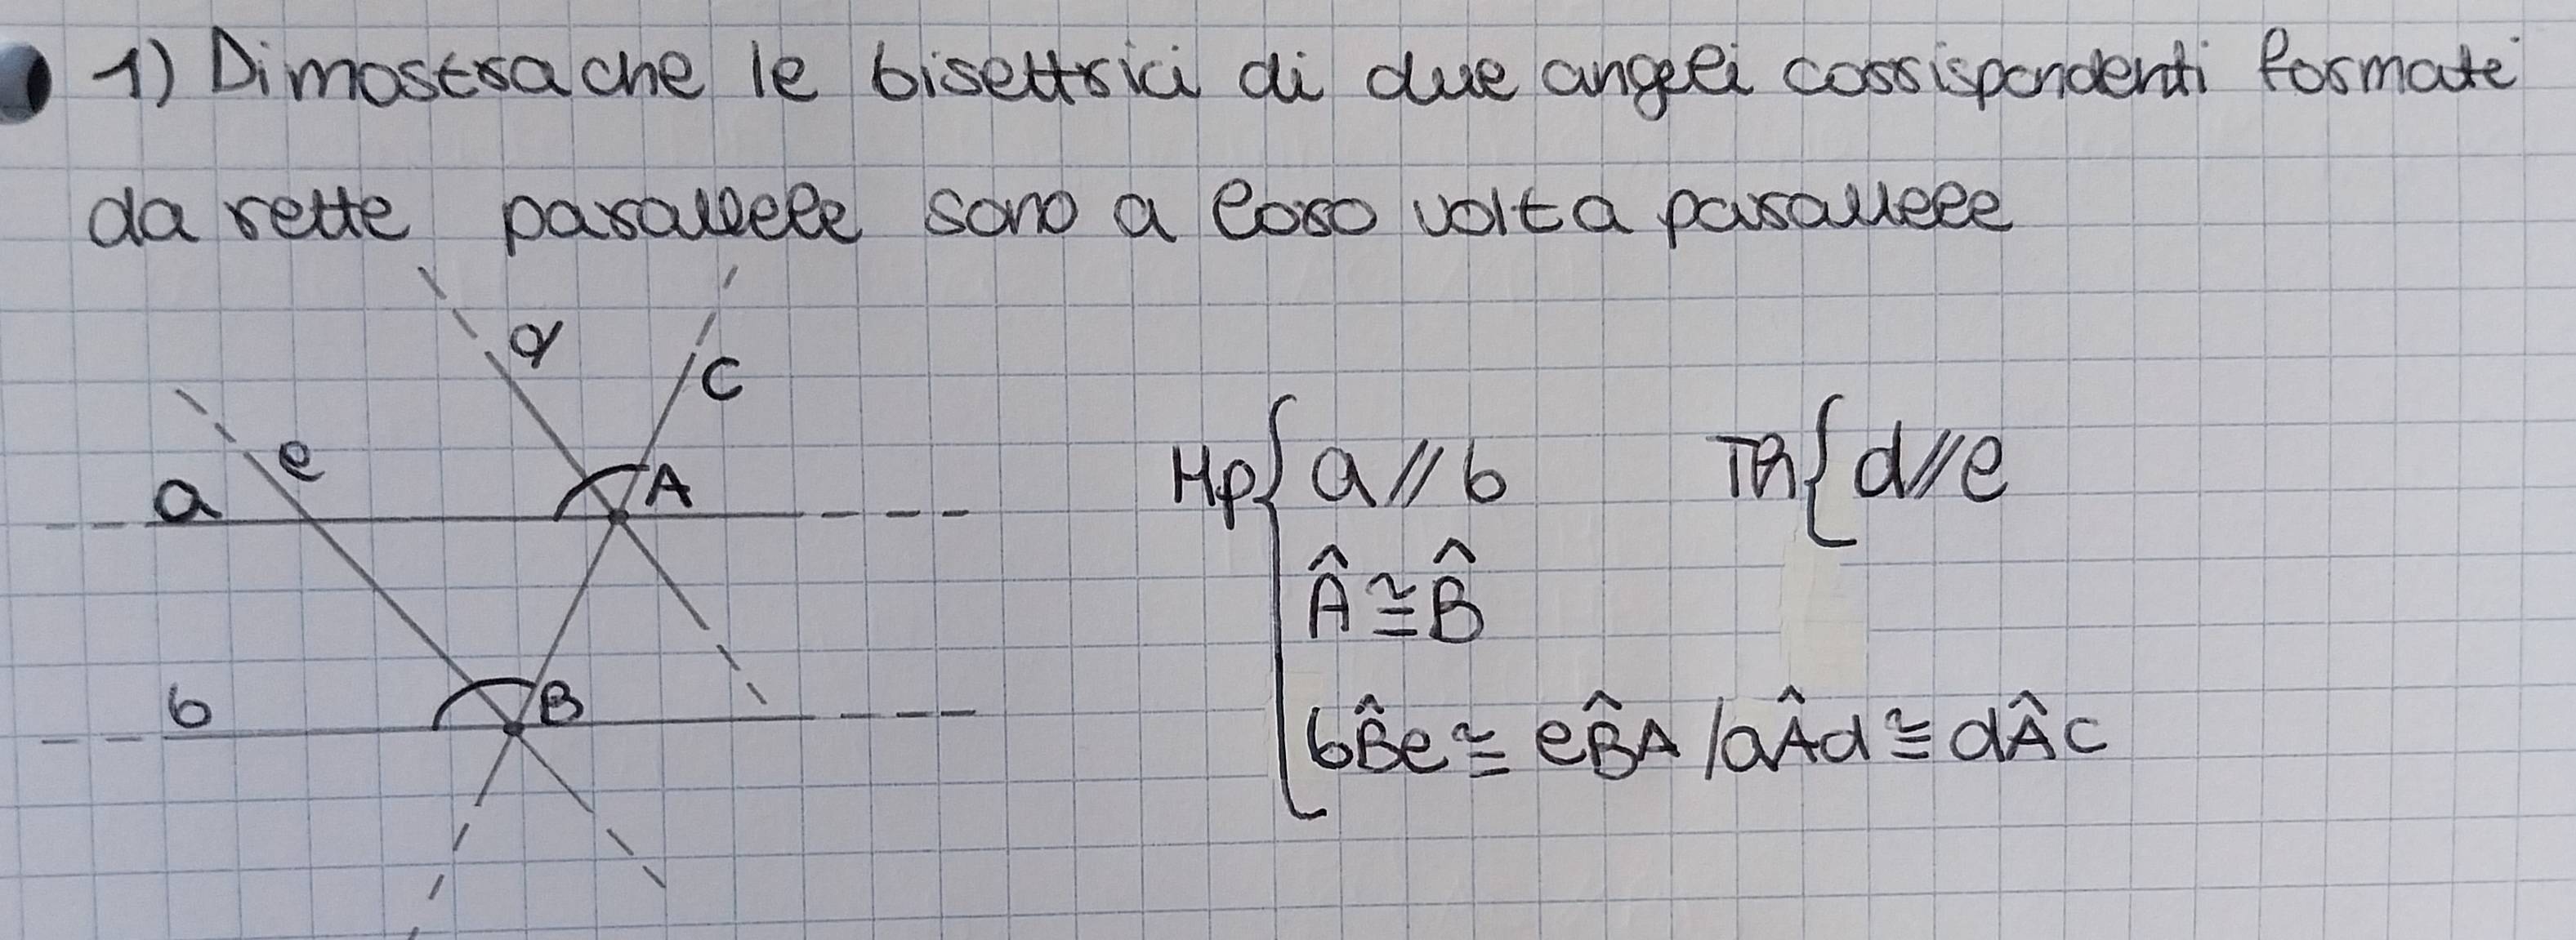 1) Dimostra che le bisettrici di due angoli corrispondenti formate
da rette parallele sono a loro volta parallele
d
c
e
a
A
Hp{ a // b Th{ d // e
Â ≅ B̂
bB̂e ≅ eB̂A / aÂd ≅ dÂc
b
B